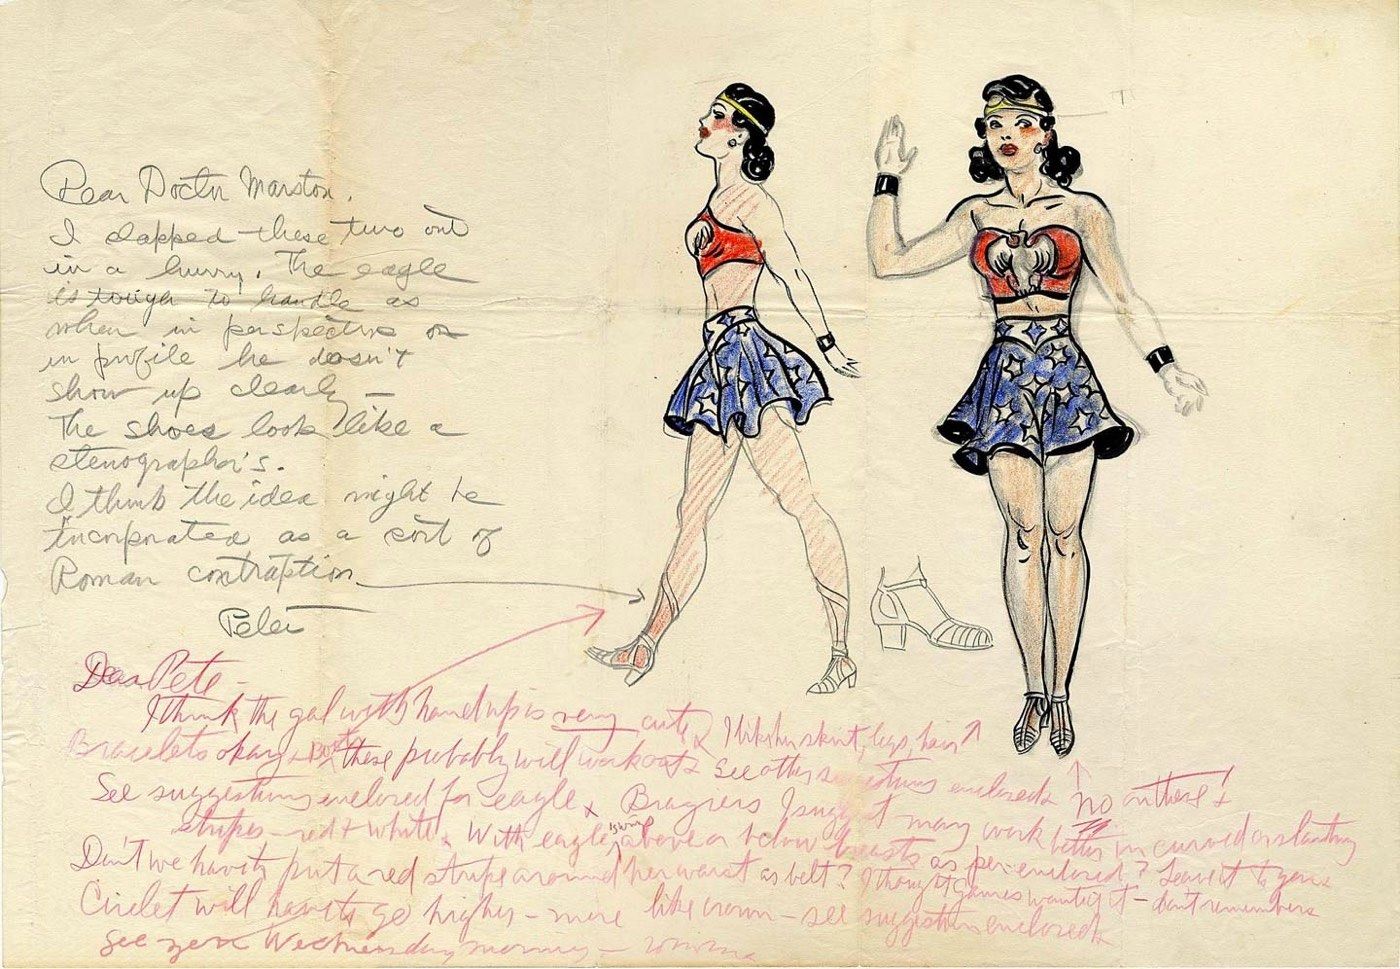 Dear Doctor Marston.
I slapped these two out
in a hurry. The eagle
is tough to handle as
when in perspective or
in profile he doesn't
show up clearly —
The shoes look like a
stenographer's.
I think the idea might be
incorporated as a sort of
Roman contraption.
Peter
Dear Pete —
I think the gal with hand up is very cute. I like her skirt, legs, hair.
Bracelets okay + boots. these probably will work out. See other suggestions enclosed. No on these!
See suggestions enclosed for eagle. I suggest may work better in curved or slanting
stripes — red + white. With eagle's wings above or below breasts as per enclosed? Leave it to you.
Don't we have to put a red stripe around her waist as belt? I thought Gaines wanted it — don't remember.
Circlet will have to go higher — more like crown — see suggestion enclosed.
See you Wednesday morning —